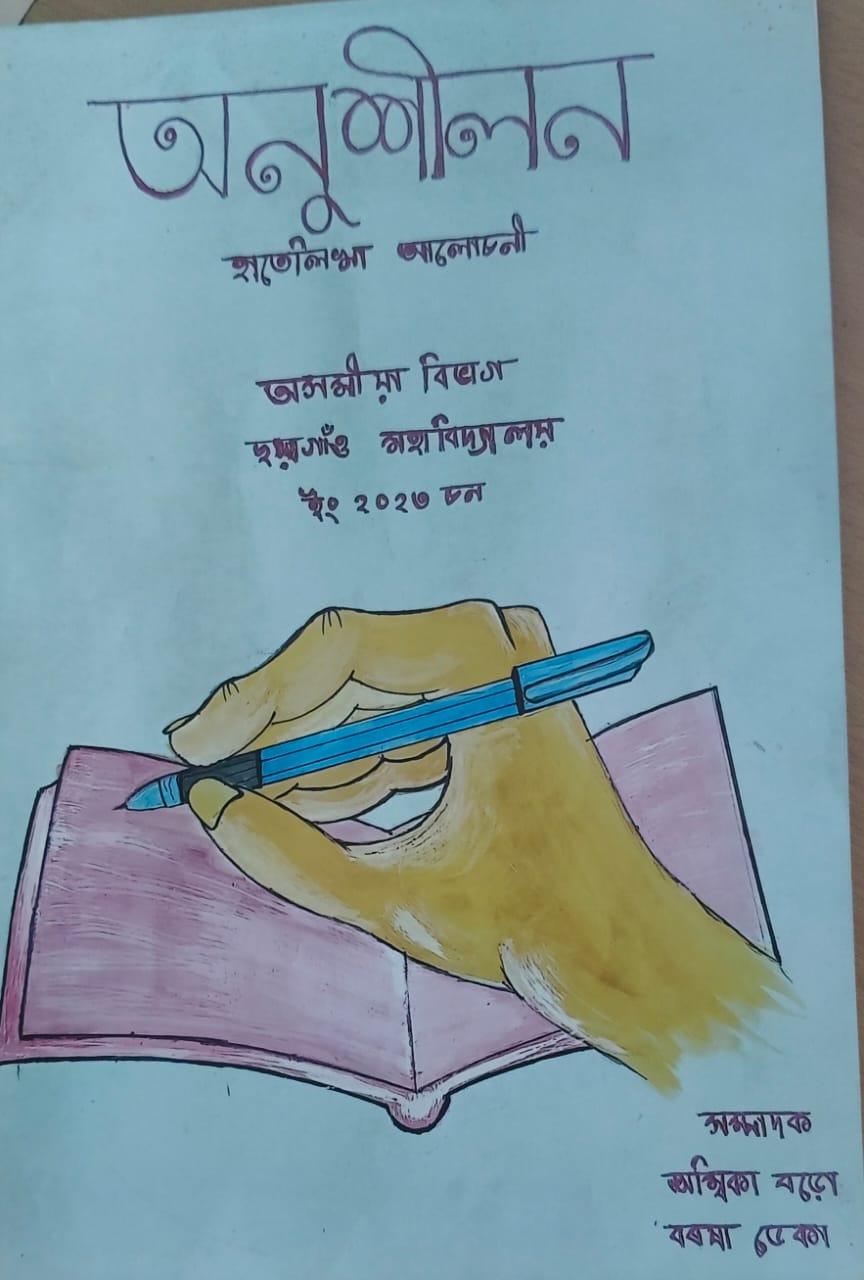 অনুশীলন
হাতেলিখা আলোচনী
অসমীয়া বিভাগ
ছয়গাঁও মহাবিদ্যালয়
ইং ২০২৩ চন
সম্পাদক
অম্বিকা বড়ো
বৰষা ডেকা